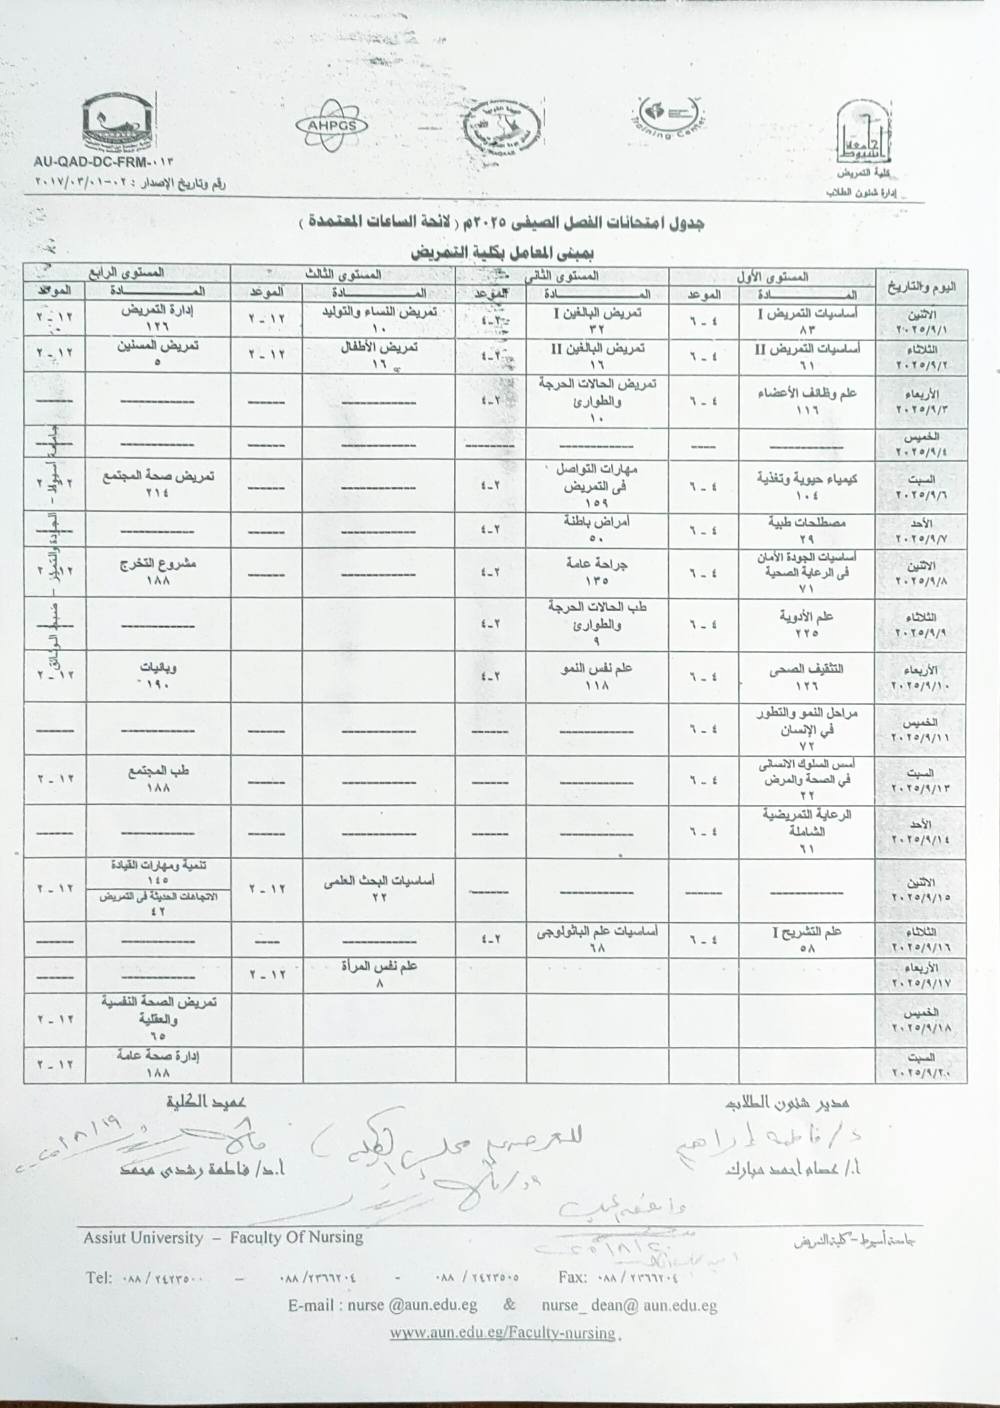 AHPGS
Training Center
جامعة أسيوط
كلية التمريض
إدارة شئون الطلاب
AU-QAD-DC-FRM-٠١٣
رقم وتاريخ الإصدار : ٠٢-٢٠١٧/٠٣/٠١
جدول امتحانات الفصل الصيفى ٢٠٢٥م ( لائحة الساعات المعتمدة )
بمبنى المعامل بكلية التمريض
اليوم والتاريخ | المستوى الأول | المستوى الثانى | المستوى الثالث | المستوى الرابع
المـــادة | الموعد | المـــادة | الموعد | المـــادة | الموعد | المـــادة | الموعد
الاثنين ٢٠٢٥/٩/١ | أساسيات التمريض I ٨٣ | ٤ - ٦ | تمريض البالغين I ٣٢ | ٢-٤ | تمريض النساء والتوليد ١٠ | ١٢ - ٢ | إدارة التمريض ١٢٦ | ١٢ - ٢
الثلاثاء ٢٠٢٥/٩/٢ | أساسيات التمريض II ٦١ | ٤ - ٦ | تمريض البالغين II ١٦ | ٢-٤ | تمريض الأطفال ١٦ | ١٢ - ٢ | تمريض المسنين ٥ | ١٢ - ٢
الأربعاء ٢٠٢٥/٩/٣ | علم وظائف الأعضاء ١١٦ | ٤ - ٦ | تمريض الحالات الحرجة والطوارئ ١٠ | ٢-٤ | ------ | ------ | ------ | ------
الخميس ٢٠٢٥/٩/٤ | ------ | ------ | ------ | ------ | ------ | ------ | ------ | ------
السبت ٢٠٢٥/٩/٦ | كيمياء حيوية وتغذية ١٠٤ | ٤ - ٦ | مهارات التواصل فى التمريض ١٥٩ | ٢-٤ | ------ | ------ | تمريض صحة المجتمع ٢١٤ | ١٢ - ٢
الأحد ٢٠٢٥/٩/٧ | مصطلحات طبية ٢٩ | ٤ - ٦ | أمراض باطنة ٥٠ | ٢-٤ | ------ | ------ | ------ | ------
الاثنين ٢٠٢٥/٩/٨ | أساسيات الجودة الأمان فى الرعاية الصحية ٧١ | ٤ - ٦ | جراحة عامة ١٣٥ | ٢-٤ | ------ | ------ | مشروع التخرج ١٨٨ | ١٢ - ٢
الثلاثاء ٢٠٢٥/٩/٩ | علم الأدوية ٢٢٥ | ٤ - ٦ | طب الحالات الحرجة والطوارئ ٩ | ٢-٤ | ------ | ------
الأربعاء ٢٠٢٥/٩/١٠ | التثقيف الصحى ١٢٦ | ٤ - ٦ | علم نفس النمو ١١٨ | ٢-٤ | وبائيات ١٩٠ | ١٢ - ٢
الخميس ٢٠٢٥/٩/١١ | مراحل النمو والتطور في الإنسان ٧٢ | ٤ - ٦ | ------ | ------ | ------ | ------ | ------ | ------
السبت ٢٠٢٥/٩/١٣ | أسس السلوك الانسانى في الصحة والمرض ٢٢ | ٤ - ٦ | ------ | ------ | ------ | ------ | طب المجتمع ١٨٨ | ١٢ - ٢
الأحد ٢٠٢٥/٩/١٤ | الرعاية التمريضية الشاملة ٦١ | ٤ - ٦ | ------ | ------ | ------ | ------ | ------ | ------
الاثنين ٢٠٢٥/٩/١٥ | ------ | ------ | ------ | ------ | أساسيات البحث العلمى ٢٢ | ١٢ - ٢ | تنمية ومهارات القيادة ١٤٥ | ١٢ - ٢
الاتجاهات الحديثة فى التمريض ٤٢
الثلاثاء ٢٠٢٥/٩/١٦ | علم التشريح I ٥٨ | ٤ - ٦ | أساسيات علم الباثولوجى ٦٨ | ٢-٤ | ------ | ---- | ------ | ------
الأربعاء ٢٠٢٥/٩/١٧ | علم نفس المرأة ٨ | ١٢ - ٢ | ------ | ------
الخميس ٢٠٢٥/٩/١٨ | تمريض الصحة النفسية والعقلية ٦٥ | ١٢ - ٢
السبت ٢٠٢٥/٩/٢٠ | إدارة صحة عامة ١٨٨ | ١٢ - ٢
جامعة أسيوط - الجودة والتميز - ضبط الوثائق
مدير شئون الطلاب
عميد الكلية
للعرض على مجلس الكلية
أ./ عصام أحمد مبارك
أ.د/ فاطمة رشدى محمد
Assiut University – Faculty Of Nursing
جامعة أسيوط – كلية التمريض
Tel: ٠٨٨ / ٢٤٢٣٥٠٠ - ٠٨٨ /٢٣٦٦٢٠٤ - ٠٨٨ / ٢٤٢٣٥٠٥ Fax: ٠٨٨ / ٢٣٦٦٢٠٤
E-mail : nurse @aun.edu.eg & nurse_ dean@ aun.edu.eg
www.aun.edu.eg/Faculty-nursing.